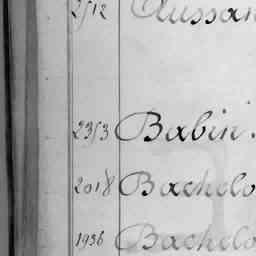 2512 Aussan
2353 Babin.
2018 Bachelo
1936 Bachelo